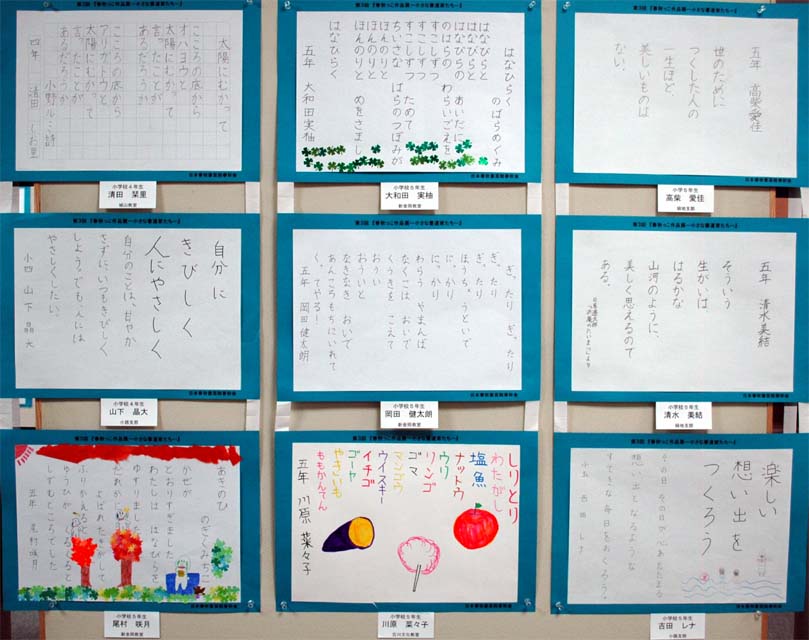 太陽にむかって
オハヨウと
太陽にむかって
言ったことが
あるだろうか
こころの底から
アリガトウと
太陽にむかって
言ったことが
あるだろうか
小野ルミ詩
四年 清田 しお里
小学校4年生
清田 栞里
はなひらく
のばらめぐみ
はなびらと
はなびらと
はなびらの あいだに
のはらの わらいごえを
すこしずつ
すこしずつ
すこしずつ ためて
ちいさな ばらのつぼみが
ほんのりと
ほんのりと めをさまし
はなひらく
五年 大和田実柚
小学校5年生
大和田 実柚
五年 高柴愛佳
世のために
つくした人の
一生ほど、
美しいものは
ない。
小学5年生
高柴 愛佳
自分に
きびしく
人にやさしく
自分のことは、甘やか
さずに、いつもきびしく
しよう。でも、人には
やさしくしたい。
小四 山下 晶大
小学校4年生
山下 晶大
小路支部
ぎったり ぎったり
ぎったり
ぎったり
ほうちょうといで
にっかり
にっかり
わらう やまんば
なくこは おいで
くらきを こえて
おうい
おういと
なきなき おいで
あんころもちにいれて
くってやる!
五年 岡田健太朗
小学校5年生
岡田 健太朗
新金岡教室
五年 清水美結
そういう
生がいは、
はるかな
山河のように、
美しく思えるので
ある。
小学校5年生
清水 美結
あきのひ
のぎくみちこ
かぜが
とおりすぎました
わたしは はなびらを
ゆすりました
だれかに
よばれたきがして
ふりかえると
ゆうひが くるくると
しずむところでした
五年 尾村咲月
小学校5年生
尾村 咲月
新金岡教室
しりとり
わたがし
塩魚
ナットウ
ウリ
リンゴ
ゴマ
マンゴウ
ウイスキー
イチゴ
ゴーヤ
やきいも
ももかんてん
五年 川原菜々子
小学校5年生
川原 菜々子
楽しい
想い出を
つくろう
その日その日が心あたたまる
想い出となるような
すてきな毎日をおくろう。
小五 吉田 レナ
小学校5年生
吉田 レナ
小路支部